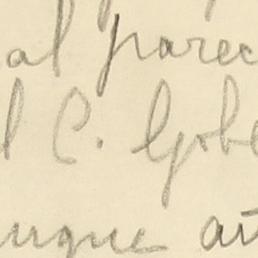 al parec
l C. Gobe
unque aú